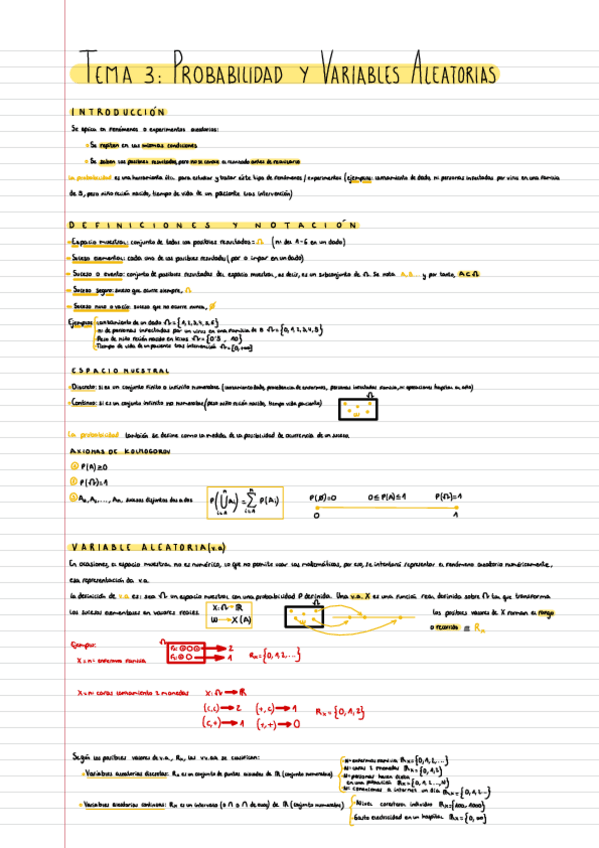 TEMA 3: PROBABILIDAD Y VARIABLES ALEATORIAS
INTRODUCCIÓN
Se aplica en fenómenos o experimentos aleatorios:
Se repiten en las mismas condiciones
Se saben los posibles resultados, pero no se conoce el resultado antes de realizarlo
La probabilidad es una herramienta útil para estudiar y tratar este tipo de fenómenos/experimentos (ejemplos: lanzamiento de dado, nº personas infectadas por virus en una familia
de 5, peso niño recién nacido, tiempo de vida de un paciente tras intervención)
DEFINICIONES Y NOTACIÓN
Espacio muestral: conjunto de todos los posibles resultados = Ω (nº del 1-6 en un dado)
Suceso elemental: cada uno de los posibles resultados (par o impar en un dado)
Suceso o evento: conjunto de posibles resultados del espacio muestral, es decir, es un subconjunto de Ω. Se nota A, B... y por tanto, A⊂Ω
Suceso seguro: suceso que ocurre siempre, Ω
Suceso nulo o vacío: suceso que no ocurre nunca, Ø
Ejemplos: lanzamiento de un dado Ω={1,2,3,4,5,6}
nº de personas infectadas por un virus en una familia de 5 Ω={0,1,2,3,4,5}
Peso de niño recién nacido en kilos Ω=[0'5, 10]
Tiempo de vida de un paciente tras intervención Ω=[0,+∞]
ESPACIO MUESTRAL
Discreto: si es un conjunto finito o infinito numerable (lanzamiento dado, procedencia de enfermos, personas infectadas familia, nº operaciones hospital en año)
Continuo: si es un conjunto infinito no numerable (peso niño recién nacido, tiempo vida paciente)
Ω
w
La probabilidad también se define como la medida de la posibilidad de ocurrencia de un suceso.
AXIOMAS DE KOLMOGOROV
1 P(A)≥0
2 P(Ω)=1
3 A₁, A₂, ..., Aₙ sucesos disjuntos dos a dos P(⋃ Aᵢ) = ∑ P(Aᵢ) P(Ø)=0 0≤P(A)≤1 P(Ω)=1
0 1
VARIABLE ALEATORIA (v.a)
En ocasiones, el espacio muestral no es numérico, lo que no permite usar las matemáticas, por eso, se intentará representar el fenómeno aleatorio numéricamente,
esa representación da v.a.
La definición de v.a. es: sea Ω un espacio muestral con una probabilidad P definida. Una v.a. X es una función real definida sobre Ω tal que transforma
los sucesos elementales en valores reales X: Ω → ℝ Ω los posibles valores de X forman el rango
w → X(A) w o recorrido Rx
Ejemplo:
X = nº enfermos familia → 2 → 1 Rx={0,1,2,...}
X = nº caras lanzamiento 2 monedas X: Ω → ℝ
(c,c) → 2 (+,c) → 1 Rx={0,1,2}
(c,+) → 1 (+,+) → 0
Según los posibles valores de v.a., Rx, las vv.aa se clasifican:
Variables aleatorias discretas: Rx es un conjunto de puntos aislados de ℝ (conjunto numerable)
Nº enfermos familia Rx={0,1,2,...}
Nº caras 2 monedas Rx={0,1,2}
Nº personas
en una población Rx={0,1,2,...,N}
Nº conexiones a internet un día Rx={0,1,2...}
Variables aleatorias continuas: Rx es un intervalo (o ∩ o ∩ de ellos) de ℝ (conjunto numerable)
Nivel colesterol individuo Rx=[100,1000]
Gasto electricidad en un hospital Rx=[0,∞)